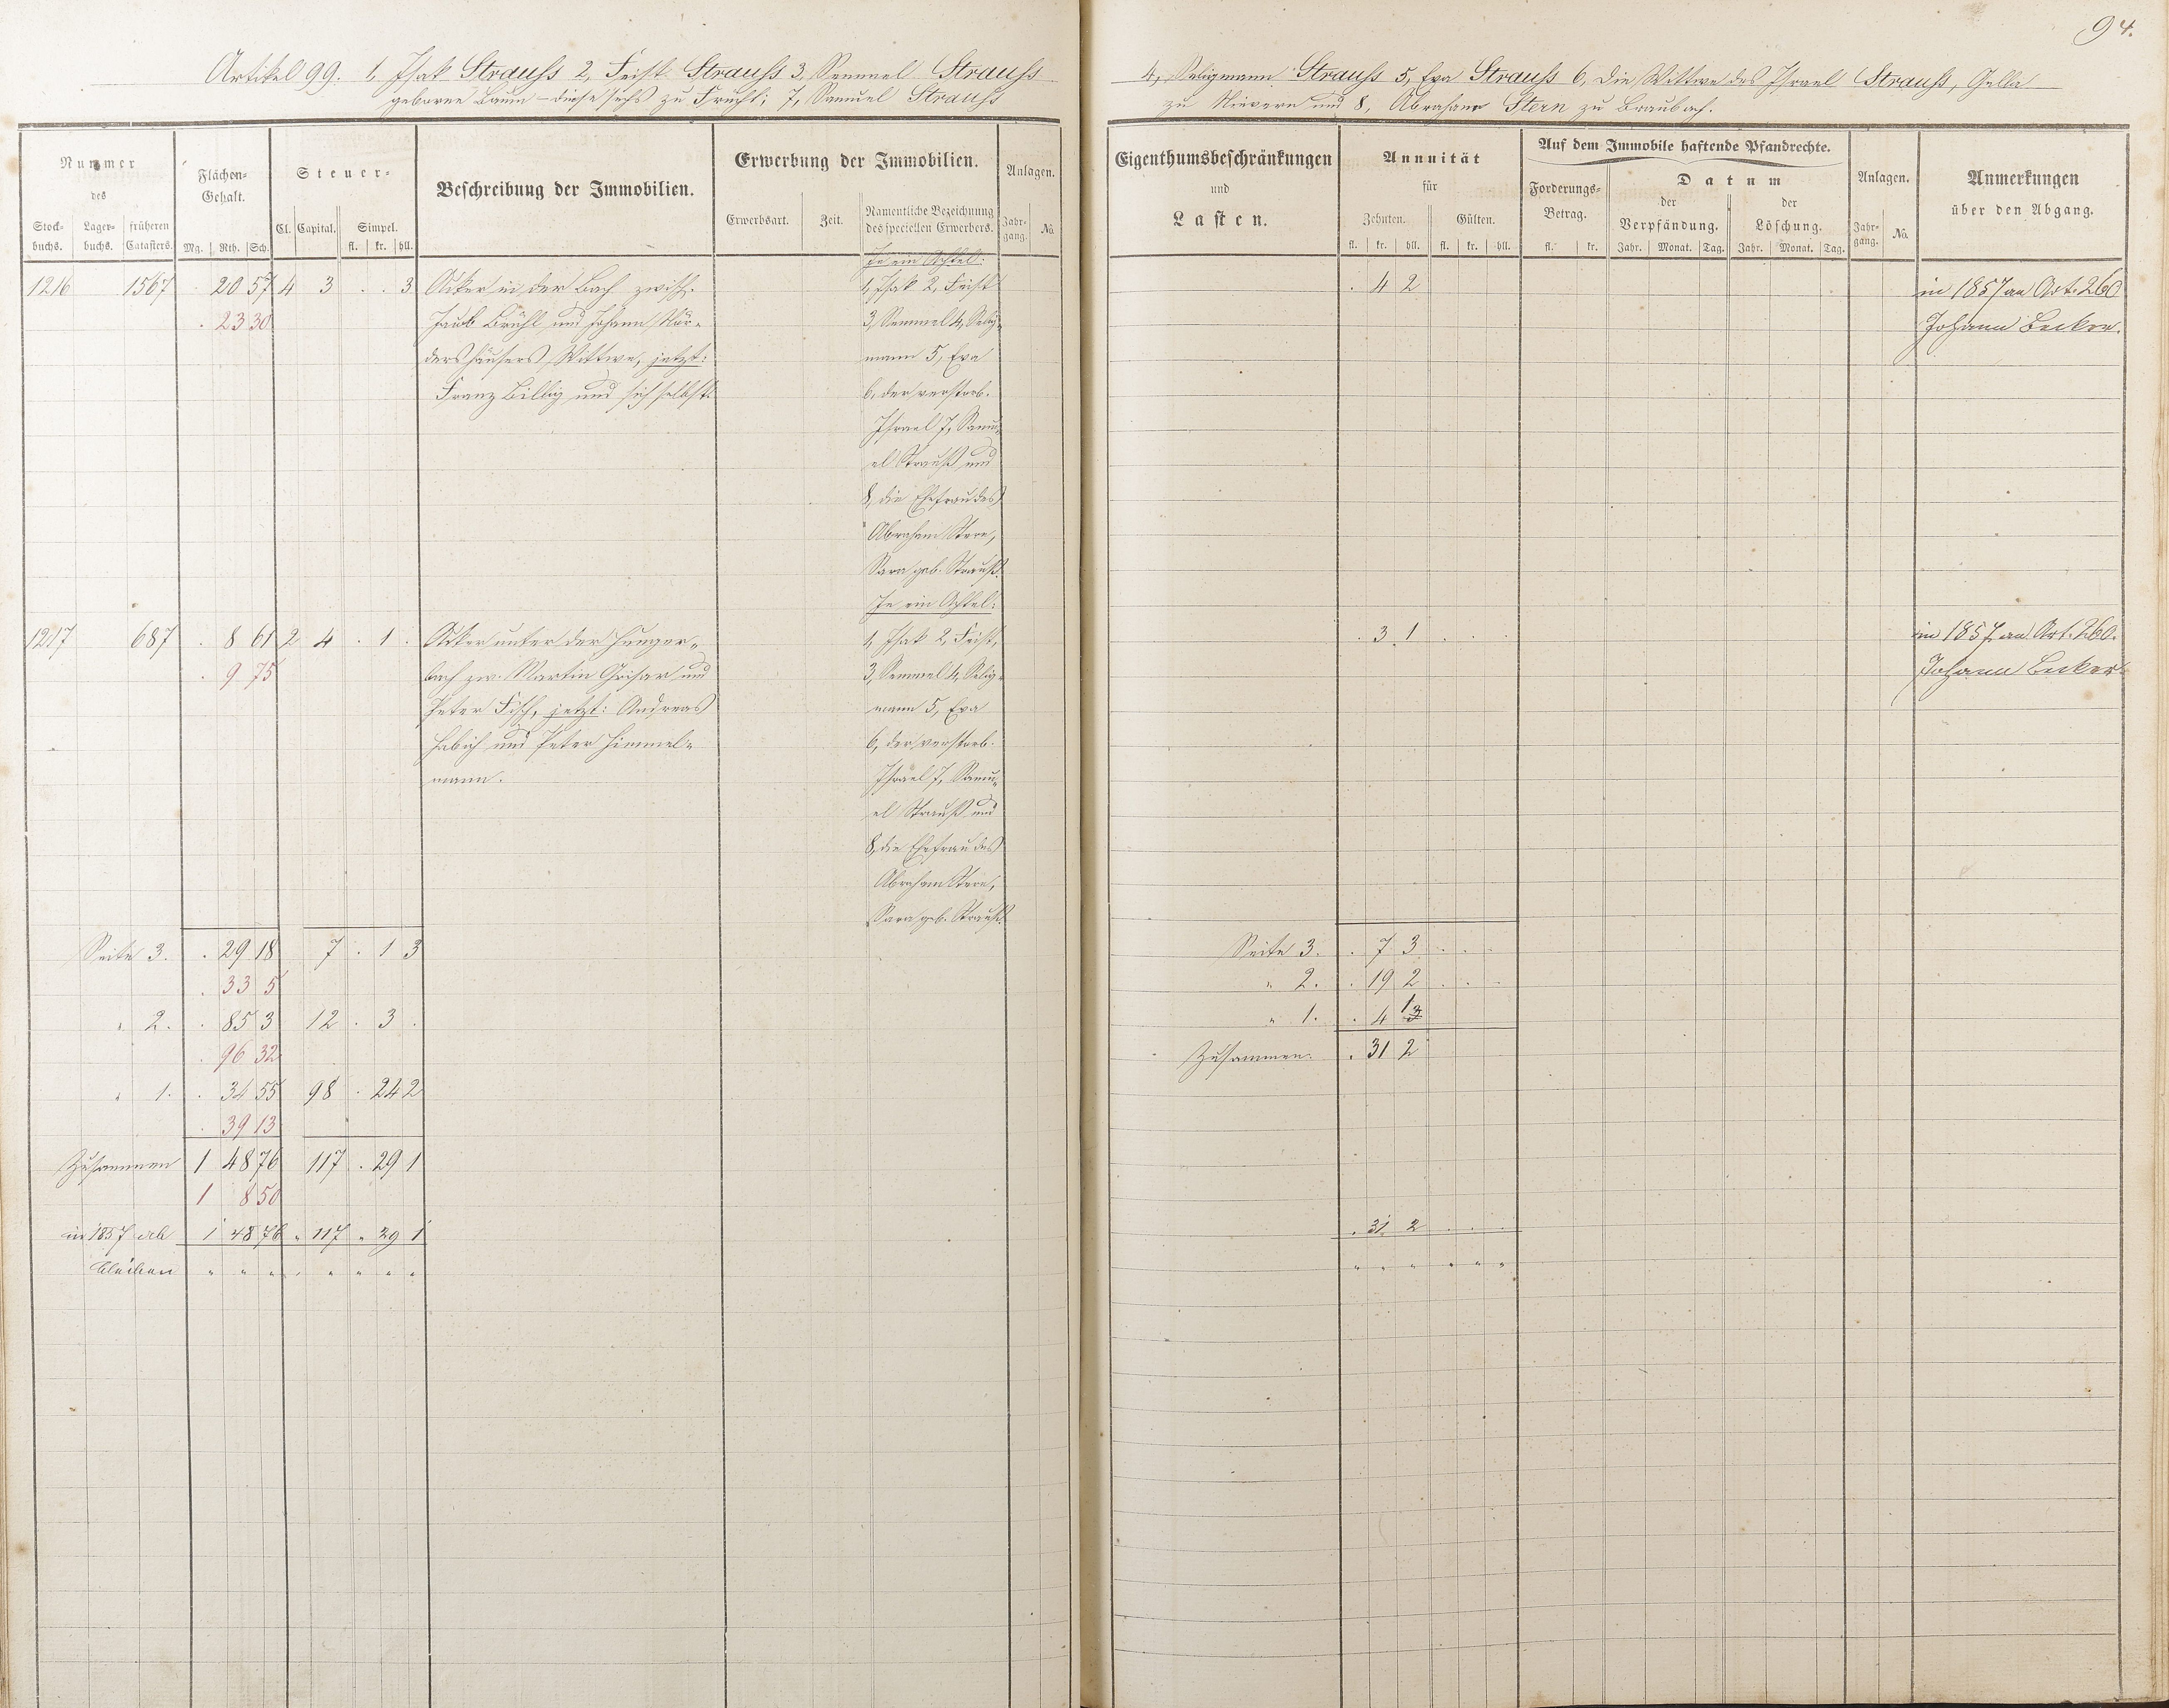 94.
Artikel 99. 1, Isak Strauss 2, Feist Strauss 3, Semmel Strauss
geborne Baum – diese sechs zu Frucht; 7, Samuel Strauss
4, Seligmann Strauss 5, Eva Strauss 6, Die Wittwe des Israel Strauss, Gella
zu Nievern und 8, Abraham Stern zu Braubach.
Nummer
des
Stock-buchs. Lager-buchs. früheren Catasters.
Flächen-Gehalt.
Mg. Rth. Sch.
Steuer-
Cl. Capital. Simpel.
fl. kr. hll.
Beschreibung der Immobilien.
Erwerbung der Immobilien.
Erwerbsart. Zeit. Namentliche Bezeichnung des speciellen Erwerbers.
Anlagen.
Jahr-gang. No.
Je ein Achtel:
1216 1567 . 20 57 4 3 . . 3 Acker in der Bach zwisch. 1, Isak 2, Feist
. 23 30 Jacob Brühl und Johann Nör- 3, Semmel 4, Selig-
dershäusers Wittwe, jetzt: mann 5, Eva
Franz Billig und sich selbst. 6, der verstorb.
Israel 7, Samu-
el Strauß und
8, die Ehefrau des
Abraham Stern,
Sara geb. Strauß.
Je ein Achtel:
1217 687 . 8 61 2 4 . 1 . Acker unter der Hunger- 1, Isak 2, Feist,
. 9 75 bach zw. Martin Grisar und 3, Semmel 4, Selig-
Peter Fisch, jetzt: Andreas mann 5, Eva
Habich und Peter Himmel- 6, der verstorb.
mann. Israel 7, Samu-
el Strauß und
8, die Ehefrau des
Abraham Stern,
Sara geb. Strauß.
Seite 3. . 29 18 7 . 1 3
. 33 5
" 2. . 85 3 12 . 3 .
. 96 32
" 1. . 34 55 98 . 24 2
. 39 13
Zusammen 1 48 76 117 . 29 1
1 8 50
in 1857 ab 1 48 76 " 117 " 29 1
bleiben " " " " " " " "
Eigenthumsbeschränkungen
und
Lasten.
Annuität
für
Zehnten. Gülten.
fl. kr. hll. fl. kr. hll.
Auf dem Immobile haftende Pfandrechte.
Forderungs-Betrag.
fl. kr.
Datum
der Verpfändung. der Löschung.
Jahr. Monat. Tag. Jahr. Monat. Tag.
Anlagen.
Jahr-gang. No.
Anmerkungen
über den Abgang.
. 4 2 in 1857 an Art. 260
Johann Becker.
. 3 1 . . . in 1857 an Art. 260.
Johann Becker
Seite 3. . 7 3 . . .
" 2. . 19 2 . . .
" 1. . 4 1
Zusammen: . 31 2
. 31 2 . . .
" " " " " "